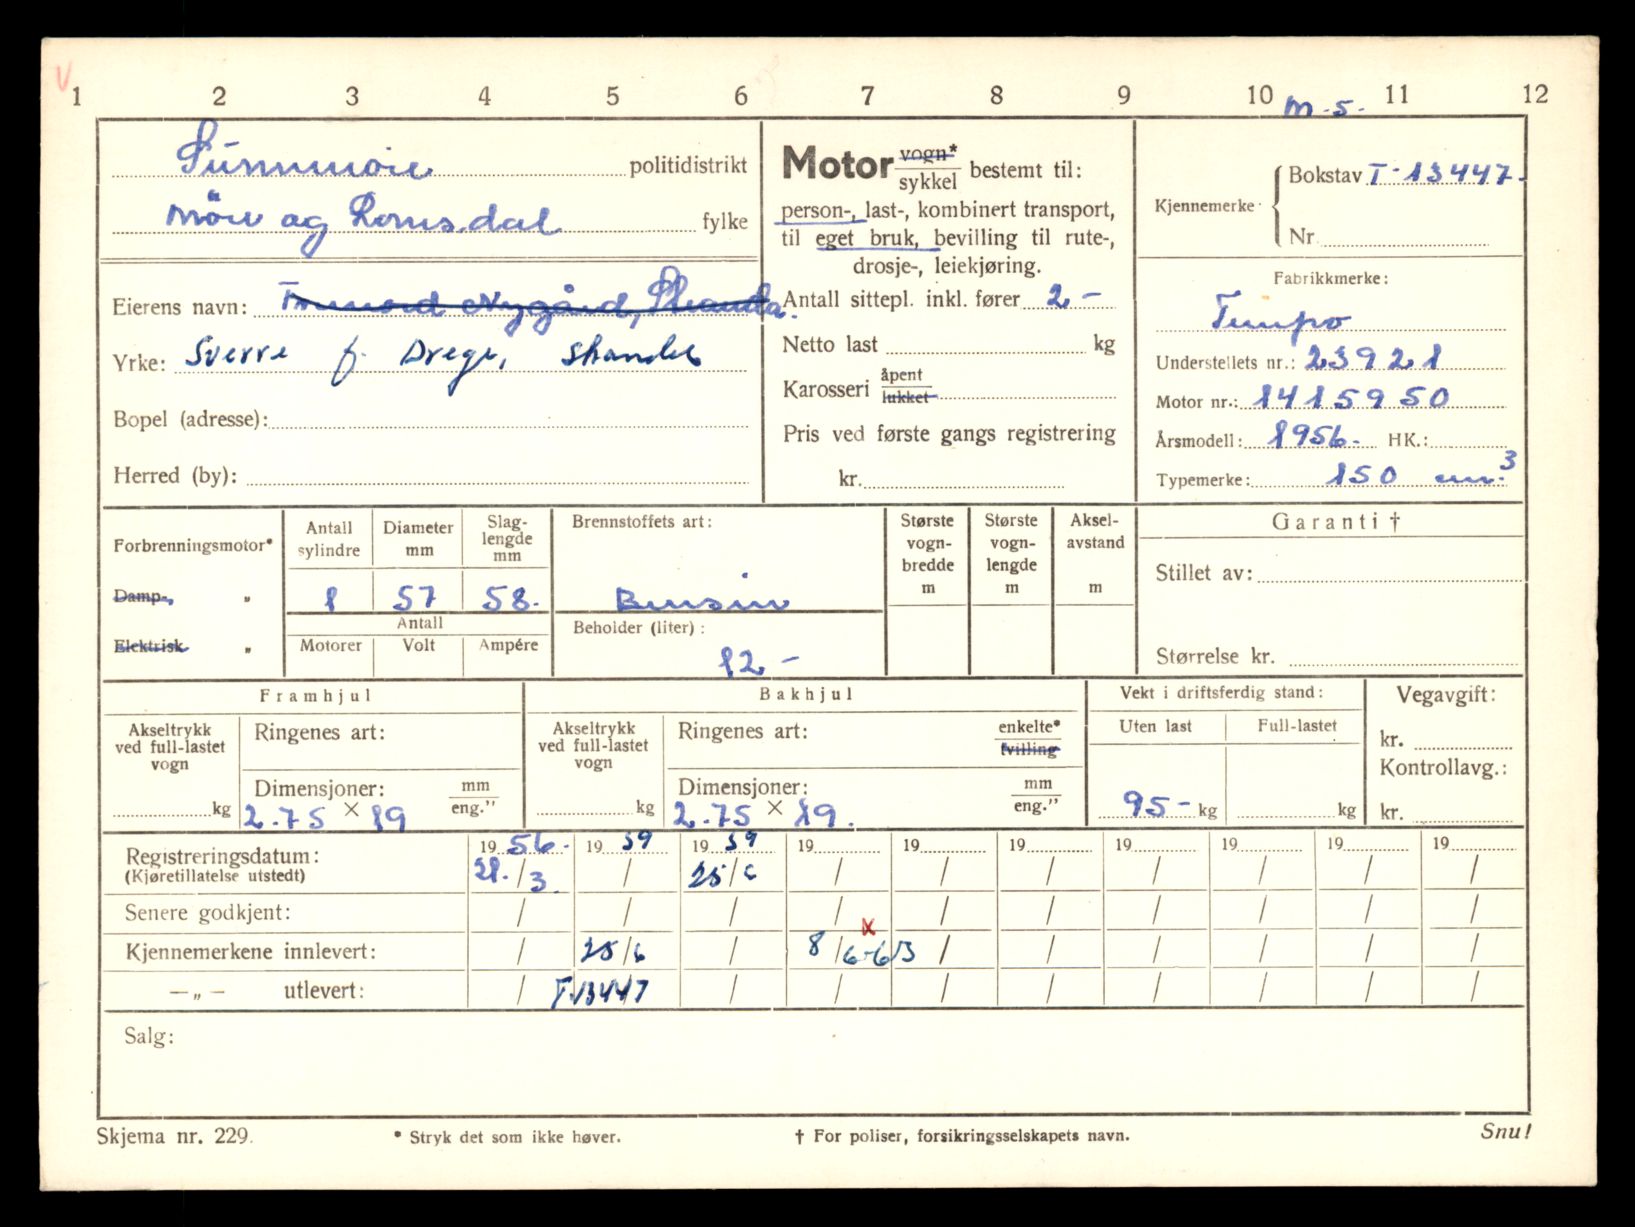 V
1 2 3 4 5 6 7 8 9 10 11 12
m.s.
Sunnmøre politidistrikt
Møre og Romsdal fylke
Eierens navn: Nygård, Stranda.
Yrke: Sverre J. Drege, Stranda
Bopel (adresse):
Herred (by):
Motor vogn* sykkel bestemt til:
person-, last-, kombinert transport,
til eget bruk, bevilling til rute-,
drosje-, leiekjøring.
Antall sittepl. inkl. fører 2 -
Netto last kg
Karosseri åpent lukket
Pris ved første gangs registrering
kr.
Kjennemerke
Bokstav T-13447.
Nr.
Fabrikkmerke:
Tempo
Understellets nr.: 23921
Motor nr.: 1415950
Årsmodell: 1956. HK.:
Typemerke: 150 cm.³
Forbrenningsmotor*
Damp-, „
Elektrisk „
Antall sylindre
Diameter mm
Slag-lengde mm
1 57 58.
Antall
Motorer Volt Ampére
Brennstoffets art:
Bensin
Beholder (liter):
12 -
Største vogn-bredde m
Største vogn-lengde m
Aksel-avstand m
Garanti †
Stillet av:
Størrelse kr.
Framhjul
Akseltrykk ved full-lastet vogn
kg
Ringenes art:
Dimensjoner: mm eng.”
2.75 × 19
Bakhjul
Akseltrykk ved full-lastet vogn
kg
Ringenes art: enkelte* tvilling
Dimensjoner: mm eng.”
2.75 × 19.
Vekt i driftsferdig stand:
Uten last Full-lastet
95 - kg kg
Vegavgift:
kr.
Kontrollavg.:
kr.
19 56. 19 59 19 59 19 19 19 19 19 19 19
Registreringsdatum: 21. / 3. / 25 / 6 / / / / / / /
(Kjøretillatelse utstedt)
Senere godkjent: / / / / / / / / / /
x
Kjennemerkene innlevert: / 25 / 6 / 8 / 6-63 / / / / / /
— „ — utlevert: / T-13447 / / / / / / / /
Salg:
Skjema nr. 229.
* Stryk det som ikke høver.
† For poliser, forsikringsselskapets navn.
Snu!